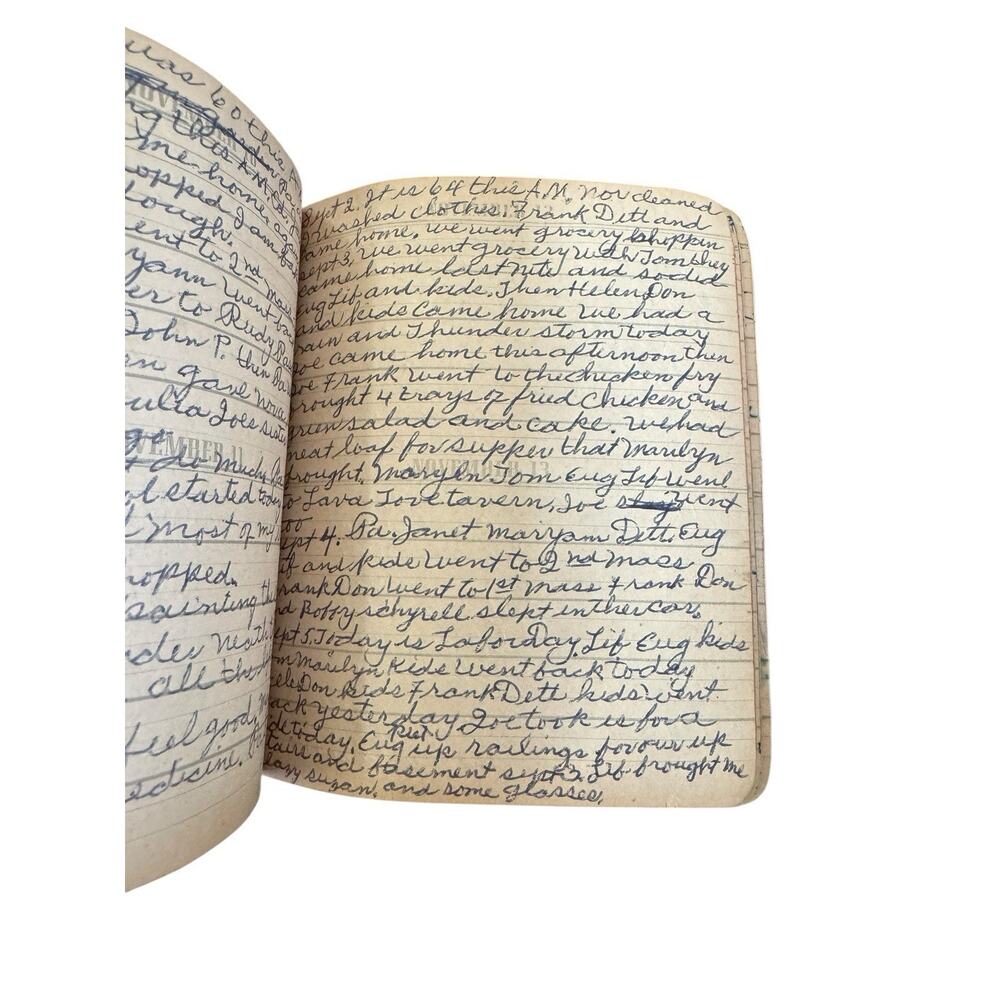 was 60 this
NOVEMBER 10
A.M.
me home, aga
opped I am
ough.
ent to 2nd mass
yann went ba
er to Rudy
John P. then
en gave
ulia Joes sister
NOVEMBER 11
do much
started today
most of my
opped.
painting the
all the
feel good,
edicine,
Sept 2. It is 64 this A.M. Nov cleaned
washed clothes. Frank Dett and
came home. we went grocery shoppin
Sept 3, We went grocery with Tom they
came home last nite and so did
Eug Lif and kids. Then Helen Don
and kids came home We had a
rain and Thunder storm today
Joe came home this afternoon then
Joe Frank went to the chicken fry
brought 4 trays of fried chicken and
salad and cake. We had
meat loaf for supper that Marilyn
NOVEMBER 13
brought. Maryln Tom Eug Lif went
to Lava Love tavern, Joe went
too
Sept 4. Pa. Janet Maryann Dett. Eug
Lif and kids went to 2nd mass
Frank Don went to 1st Mass Frank Don
and Bobby slept in ther car,
Sept 5. Today is Labor Day. Lif Eug kids
Tom Marilyn kids went back today
Helen Don kids Frank Dett kids went
back yesterday Joe took is for a
ride today. Eug put up railings for our up
stairs and basement sept 3. Lif brought me
sugar, and some glasses,